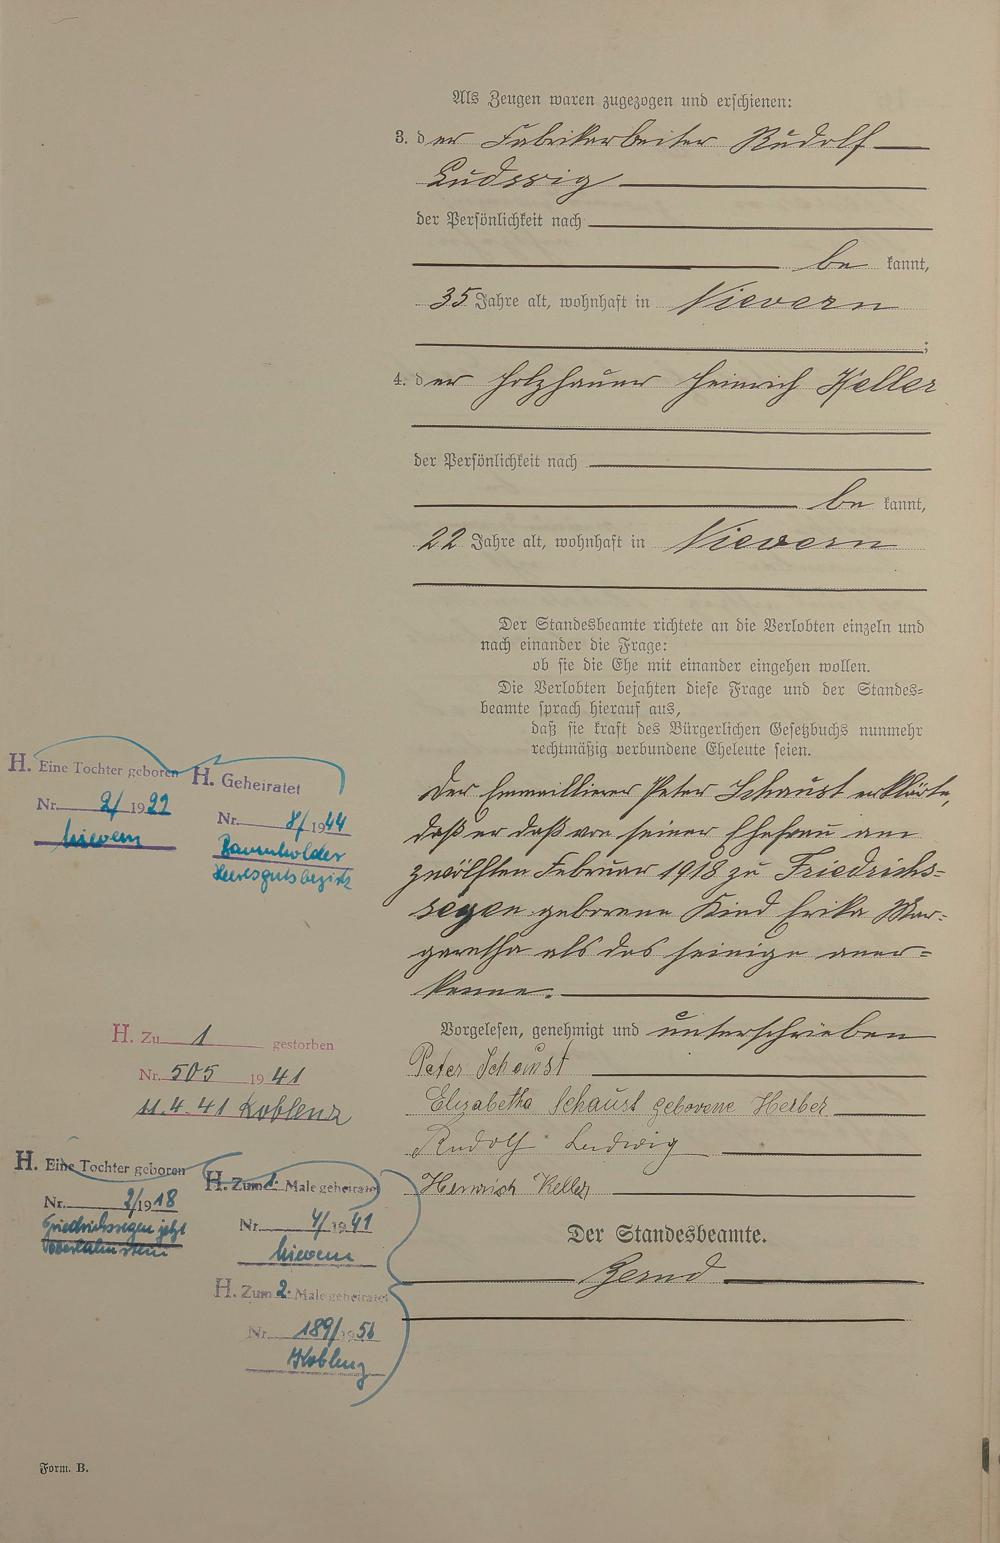 Als Zeugen waren zugezogen und erschienen:
3. der Fabrikarbeiter Rudolf
Ludwig
der Persönlichkeit nach
be kannt,
35 Jahre alt, wohnhaft in Nievern
;
4. der Holzhauer Heinrich Keller
der Persönlichkeit nach
be kannt,
22 Jahre alt, wohnhaft in Nievern
Der Standesbeamte richtete an die Verlobten einzeln und
nach einander die Frage:
ob sie die Ehe mit einander eingehen wollen.
Die Verlobten bejahten diese Frage und der Standes=
beamte sprach hierauf aus,
daß sie kraft des Bürgerlichen Gesetzbuchs nunmehr
rechtmäßig verbundene Eheleute seien.
Der Emaillierer Peter Schaust erklärte,
daß er daß von seiner Ehefrau am
zwölften Februar 1918 zu Friedrichs=
segen geborene Kind Erika Mar=
garetha als das seinige aner=
kenne.
Vorgelesen, genehmigt und unterschrieben
Peter Schaust
Elisabetha Schaust geborene Herber
Rudolf Ludwig
Heinrich Keller
Der Standesbeamte.
H. Eine Tochter geboren
Nr. 2/1922
Nievern
H. Geheiratet
Nr. 8/1944
Baumholder
Heeresgutsbezirk
H. Zu 1 gestorben
Nr. 505 1941
11.4.41 Koblenz
H. Eine Tochter geboren
Nr. 2/1918
Friedrichssegen jetzt
Oberlahnstein
H. Zum 1. Male geheiratet
Nr. 4/1941
Nievern
H. Zum 2. Male geheiratet
Nr. 189/1956
Koblenz
Form. B.